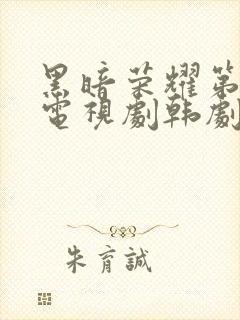 黑暗荣耀第
電視劇韩劇
朱育誠